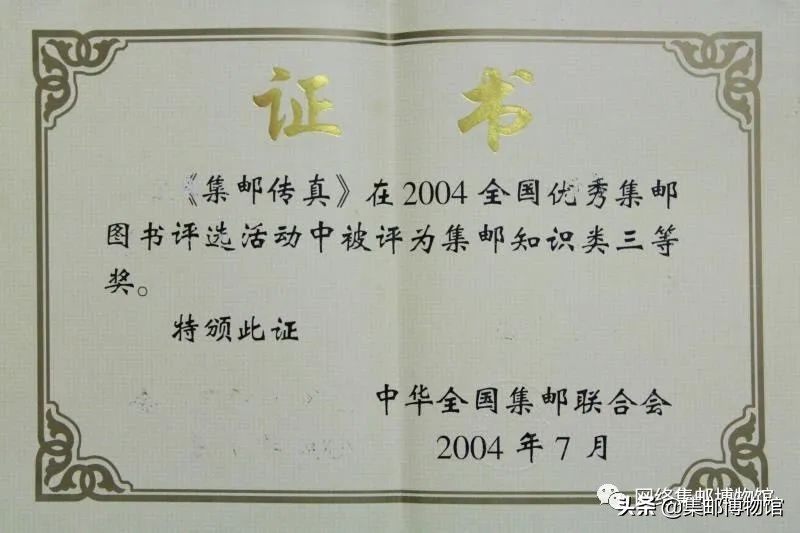 证书
《集邮传真》在2004全国优秀集邮
图书评选活动中被评为集邮知识类三等
奖。
特颁此证
中华全国集邮联合会
2004年7月
网络集邮博物馆
头条@集邮博物馆